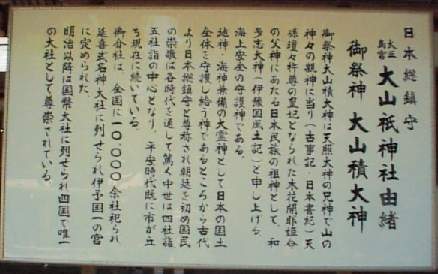 日本総鎮守
大三島宮 大山祇神社由緒
御祭神 大山積大神
御祭神大山積大神は天照大神の兄神で山の
神々の親神に当り(古事記・日本書紀)天
孫瓊々杵尊の皇妃となられた木花開耶姫命
の父神にあたる日本民族の祖神として、和
多志大神(伊豫国風土記)と申し上げる。
海上安全の守護神である。
地神・海神兼備の大霊神として日本の国土
全体を守護し給う神であるところから古代
より日本総鎮守と尊称され朝廷を初め国民
の崇敬は各時代を通して篤く中世は四社詣
五社詣の中心となり、平安時代既に市が立
ち現在に続いている。
御分社は、全国に10,000余社祀られ
延喜式名神大社に列せられ伊予国一の宮
に定められた。
明治以降は国幣大社に列せられ四国で唯一
の大社として尊崇されている。